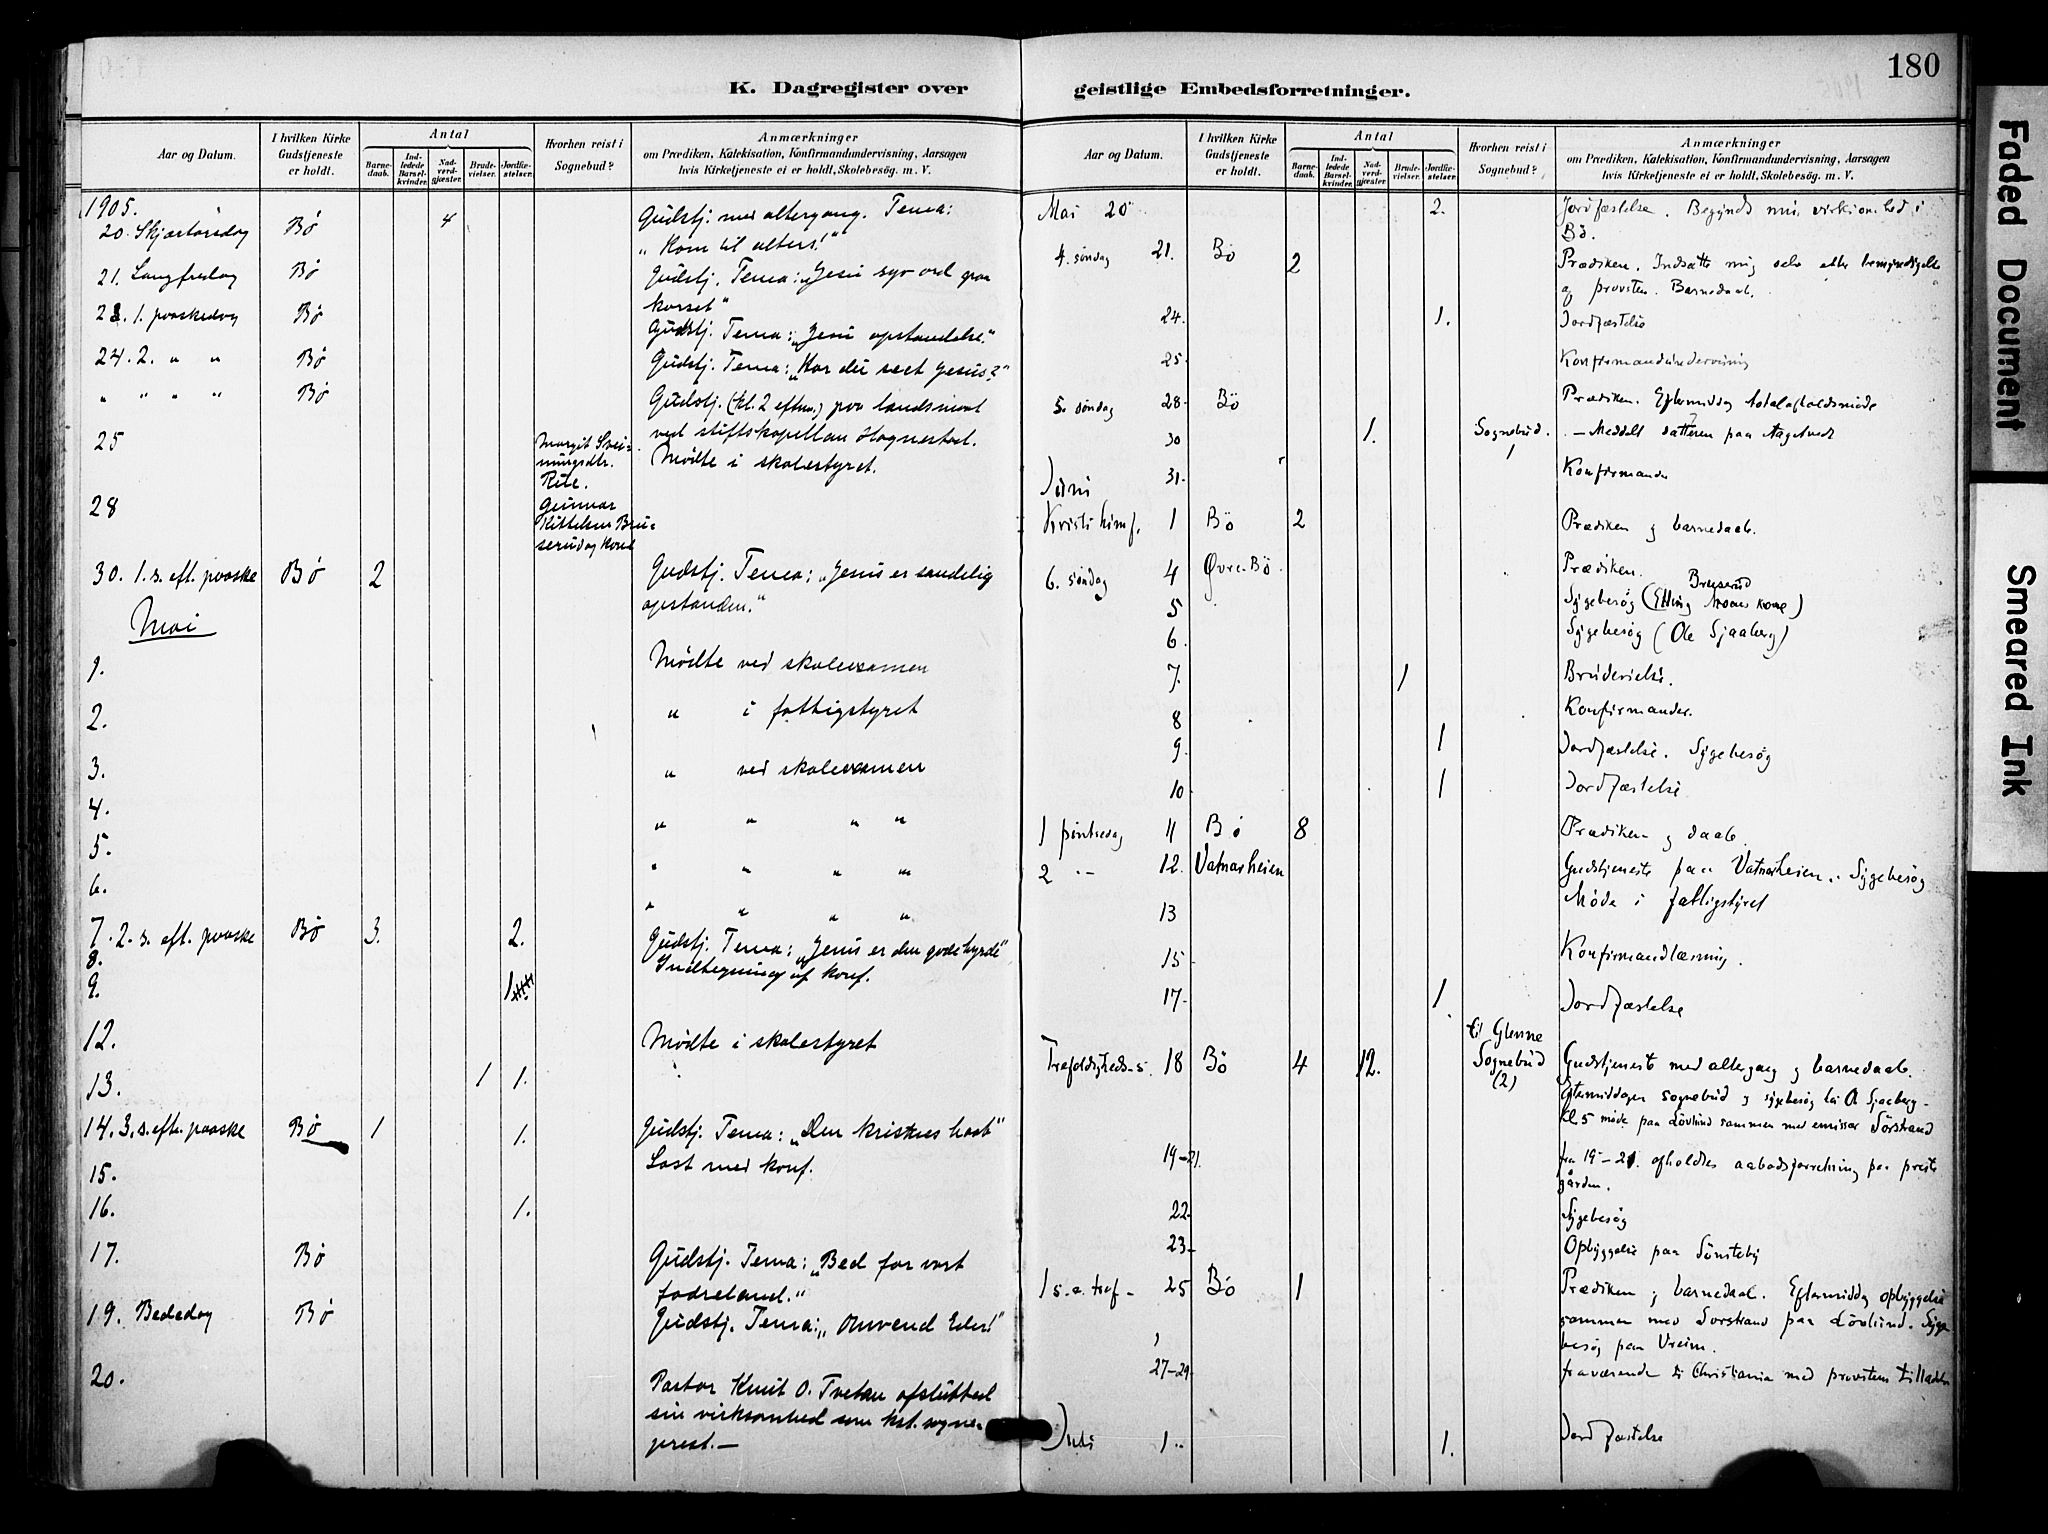 K. Dagregister over
Aar og Datum.
I hvilken Kirke Gudstjeneste er holdt.
Antal
Barnedaab.
Indledede Barselkvinder.
Nadverdgjæster.
Brudevielser.
Jordfæstelser.
Hvorhen reist i Sognebud?
Anmærkninger
om Prædiken, Katekisation, Konfirmandundervisning, Aarsagen
hvis Kirketjeneste ei er holdt, Skolebesøg. m. V.
1905.
20. Skjærtorsdag Bø 4 Gudstj. med altergang. Tema:
"Kom til alters!"
21. Langfredag Bø Gudstj. Tema: "Jesu syv ord paa
korset"
23. 1. paaskedag Bø Gudstj. Tema: "Jesu opstandelse."
24. 2. " " Bø Gudstj. Tema: "Har du seet Jesus?"
" " " " Bø Gudstj. (kl. 2 efterm.) paa landsmaal
ved stiftskapellan Hognestad.
25 Margit Svei-
nungsdtr.
Rue.
Mødte i skolestyret.
28 Gunnar
Kittelsen Bru-
serud og kone
30. 1. s. eft. paaske Bø 2 Gudstj. Tema: "Jesus er sandelig
opstanden."
Mai
1. Mødte ved skoleexamen
2. " i fattigstyret
3. " ved skoleexamen
4. " " " "
5. " " " "
6. " " " "
7. 2. s. eft. paaske Bø 3. 2. Gudstj. Tema: "Jesus er den gode hyrde"
8. Indtegning af konf.
9. 1
12. Mødte i skolestyret
13. 1 1.
14. 3. s. eft. paaske Bø 1 1. Gudstj. Tema: "Den kristnes haab"
15. Læst med konf.
16. 1.
17. Bø Gudstj. Tema: "Bed for vort
fædreland."
19. Bededag Bø Gudstj. Tema: "Omvend Eder!"
20. Pastor Knut O. Tveten afslutted
sin virksomhed som kst. sogne-
prest.—
geistlige Embedsforretninger.
180
Aar og Datum.
I hvilken Kirke Gudstjeneste er holdt.
Antal
Barnedaab.
Indledede Barselkvinder.
Nadverdgjæster.
Brudevielser.
Jordfæstelser.
Hvorhen reist i Sognebud?
Anmærkninger
om Prædiken, Katekisation, Konfirmandundervisning, Aarsagen
hvis Kirketjeneste ei er holdt, Skolebesøg. m. V.
Mai 20 2. Jordfæstelse. Begyndt min virksomhed i
Bø.
4. søndag 21. Bø 2 Prædiken. Indsatte mig selv efter bemyndigelse
af provsten. Barnedaab.
24. 1. Jordfæstelse
25. Konfirmandundervisning
5. søndag 28. Bø Prædiken. Eftermiddag totalafholdsmøde
30 1. Sognebud. - Meddelt datteren paa
31. Konfirmander
Juni
Kristi himf. 1 Bø 2 Prædiken og barnedaab.
6. søndag 4 Øvre-Bø. Prædiken.
5 Sygebesøg (Elling Moens kone) Bruserud
6. Sygebesøg (Ole Sjaaberg)
7. 1 Brudevielse.
8 Konfirmander.
9. 1 Jordfæstelse. Sygebesøg
10 1 Jordfæstelse
1 pintsedag 11 Bø 8 Prædiken og daab
2 -"- 12. Vatnarheien Gudstjeneste paa Vatnarheien. Sygebesøg
13 Møde i fattigstyret
15 Konfirmandlæsning.
17 1 Jordfæstelse
til Glenne
Trefoldigheds-s. 18 Bø 4 12. Sognebud (2) Gudstjeneste med altergang og barnedaab.
Eftermiddagen sognebud og sygebesøg hos O. Sjaaberg.
Kl 5 møde paa Løvlund sammen med emissær Sørstrand
19-21. fra 19-21. afholdtes aabodsforretning paa preste
gården.
22 Sygebesøg
23 Opbyggelse paa Sønsteby
1 s. e. tref. 25 Bø 1 Prædiken og barnedaab. Eftermiddag opbyggelse
sammen med Sørstrand paa Løvlund. Syge
besøg paa Vreim.
27-29 fraværende til Christiania med provstens tilladelse
Juli 1 1. Jordfæstelse
Faded Document
Smeared Ink